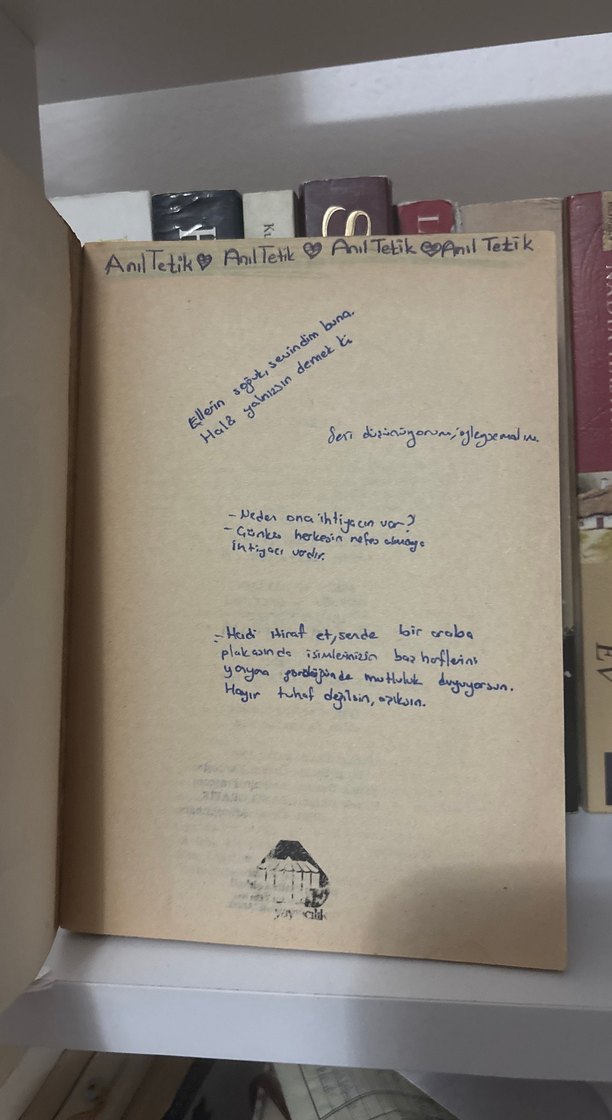 Anıl Tetik Anıl Tetik Anıl Tetik Anıl Tetik
Ellerin soğuk, sevindim buna.
Hala yalnızsın demek ki
Seni düşünüyorum, öyleyse malın.
- Neden ona ihtiyacın var?
- Çünkü herkesin nefes almaya
ihtiyacı vardır.
- Hadi itiraf et, sende bir araba
plakasında isimlerinizin baş harflerini
yanyana gördüğünde mutluluk duyuyorsun.
Hayır tuhaf değilsin, aşıksın.
yayıncılık
EV